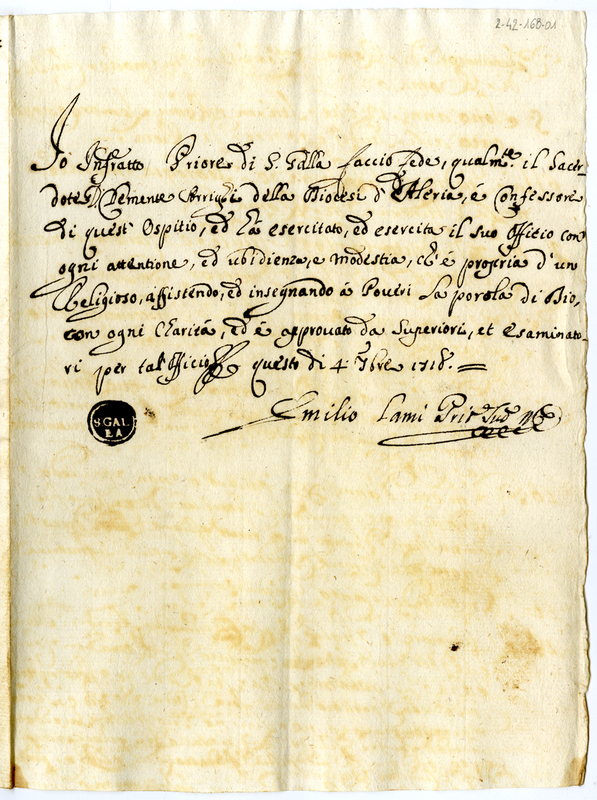 2-42-168-01
Io Infratto Priore di S. Galla faccio fede, qualmte. il Sacer-
dote D. Clemente Arrighi della Diocesi d'Aleria, é Confessore
di quest'Ospitio, ed há esercitato, ed esercita il suo Officio con
ogni attentione, ed ubidienza, e modestia, ch'é propria d'un
Religioso, assistendo, ed insegnando á Poveri la parola di Dio,
con ogni Charitá, ed é approvato da Superiori, et esaminato-
ri per tal'Officio questo di 4 7bre 1718.
Emilio Lami
S GAL
LA